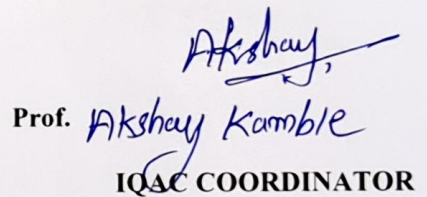 Akshay
Prof. Akshay Kamble
IQAC COORDINATOR